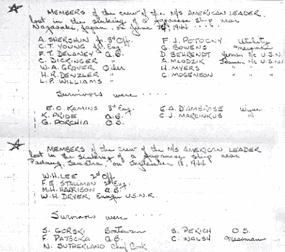 MEMBERS of the crew of the M/S AMERICAN LEADER
lost in the sinking of a Japanese ship near
Nagasaki, Japan on June 1944
A. SHERMAN 3rd Off. F. J. POTOCKY Utility
C. T. YOUNG 1st Eng. G. BOWENS Messman
F. T. DELANEY A.B. D. BEHRENDT U.S.N.R.
C. DICKINGER " A. MLODZIK
W. A. GROVER Oiler H. MYERS "
H. R. DENZLER " C. MOGENSON "
L. P. WILLIAMS "
Survivors were
E. O. KAMINS 3rd Eng. E. A. D'AMBROSE Wiper
K. PRIDE A.B. C. J. MARCINKUS "
G. PORCHIA O.S.
MEMBERS of the crew of the M/S AMERICAN LEADER
lost in the sinking of a Japanese ship near
Padang, Sumatra, on September 18, 1944
W. H. LEE 2nd Off.
F. E. STALLMAN 2nd Eng.
M. H. HARRISON A.B.
W. H. DRYER, Ensign U.S.N.R.
Survivors were
S. GORSKI Boatswain S. PERICH O.S.
F. PATOCKA A.B. C. WALSH Messman
N. SUTHERLAND Chief Cook